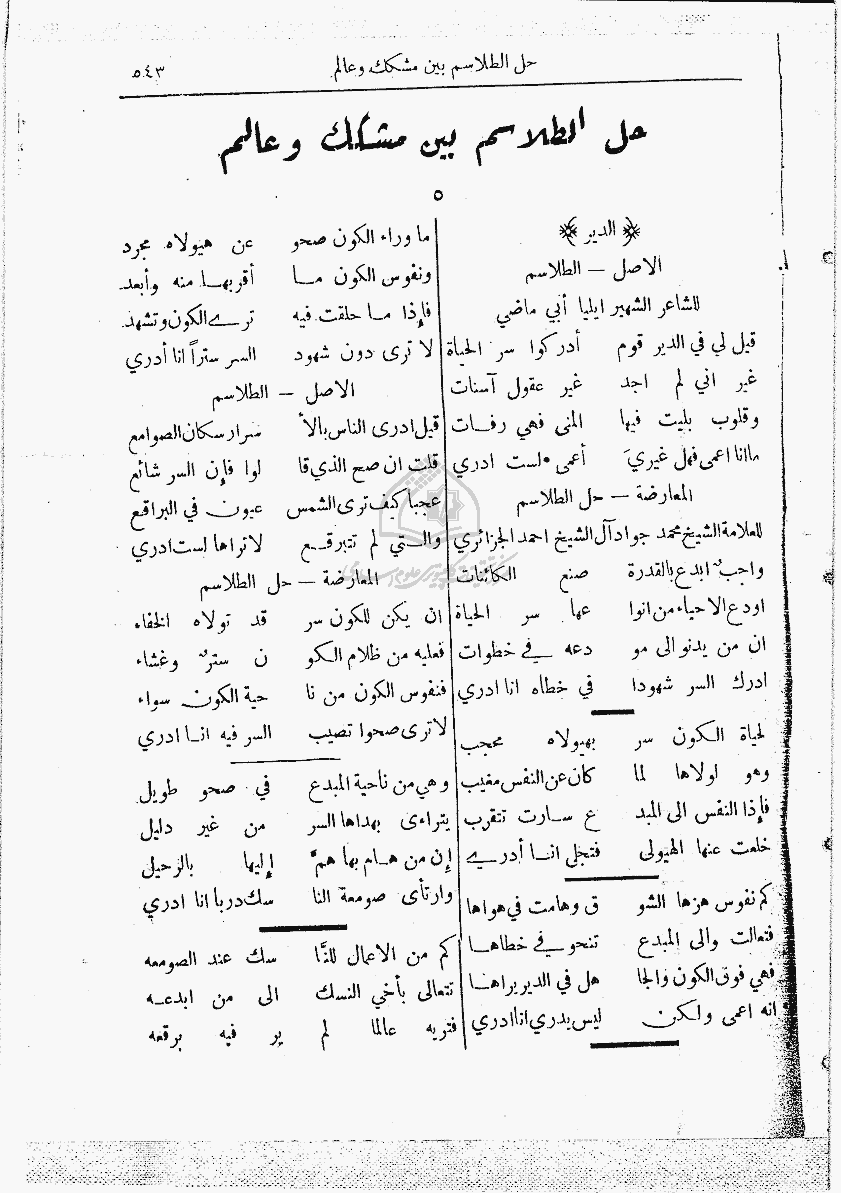 حل الطلاسم بين مشكك وعالم
٥٤٣
حل الطلاسم بين مشكك وعالم
٥
﴿ الدير ﴾
الاصل — الطلاسم
للشاعر الشهير ايليا أبي ماضي
قيل لي في الدير قوم أدركوا سر الحياة
غير اني لم اجد غير عقول آسنات
وقلوب بليت فيها المنى فهي رفات
ما انا اعمى فهل غيري أعمى لست ادري
المعارضة — حل الطلاسم
للعلامة الشيخ محمد جواد آل الشيخ احمد الجزائري
واجب ابدع بالقدرة صنع الكائنات
اودع الاحياء من انوا عها سر الحياة
ان من يدنو الى مو دعه في خطوات
ادرك السر شهودا في خطاه انا ادري
لحياة الكون سر بهيولاه محجب
وهو اولاها لما كان عن النفس مغيب
فإذا النفس الى المبد ع سارت تتقرب
خلعت عنها الهيولى فتجلى انا أدري
كم نفوس هزها الشو ق وهامت في هواها
فتعالت والى المبدع تنحو في خطاها
فهي فوق الكون والجا هل في الدير يراها
انه اعمى ولكن ليس يدري انا ادري
ما وراء الكون صحو عن هيولاه مجرد
ونفوس الكون ما أقربها منه وأبعد
فإذا ما حلقت فيه ترى الكون وتشهد
لا ترى دون شهود السر ستراً انا أدري
الاصل — الطلاسم
قيل ادرى الناس بالأ سرار سكان الصوامع
قلت ان صح الذي قا لوا فإن السر شائع
عجبا كيف ترى الشمس عيون في البراقع
والتي لم تتبرقع لا تراها لست ادري
المعارضة — حل الطلاسم
ان يكن للكون سر قد تولاه الخفاء
فعليه من ظلام الكو ن ستر وغشاء
فنفوس الكون من نا حية الكون سواء
لا ترى صحوا تصيب السر فيه انا ادري
وهي من ناحية المبدع في صحو طويل
يتراءى بهداها السر من غير دليل
إن من هام بها هم إليها بالرحيل
وارتأى صومعة النا سك دربا انا ادري
كم من الاعمال للنا سك عند الصومعه
تتعالى بأخي النسك الى من ابدعه
فتريه عالما لم ير فيه برقعه